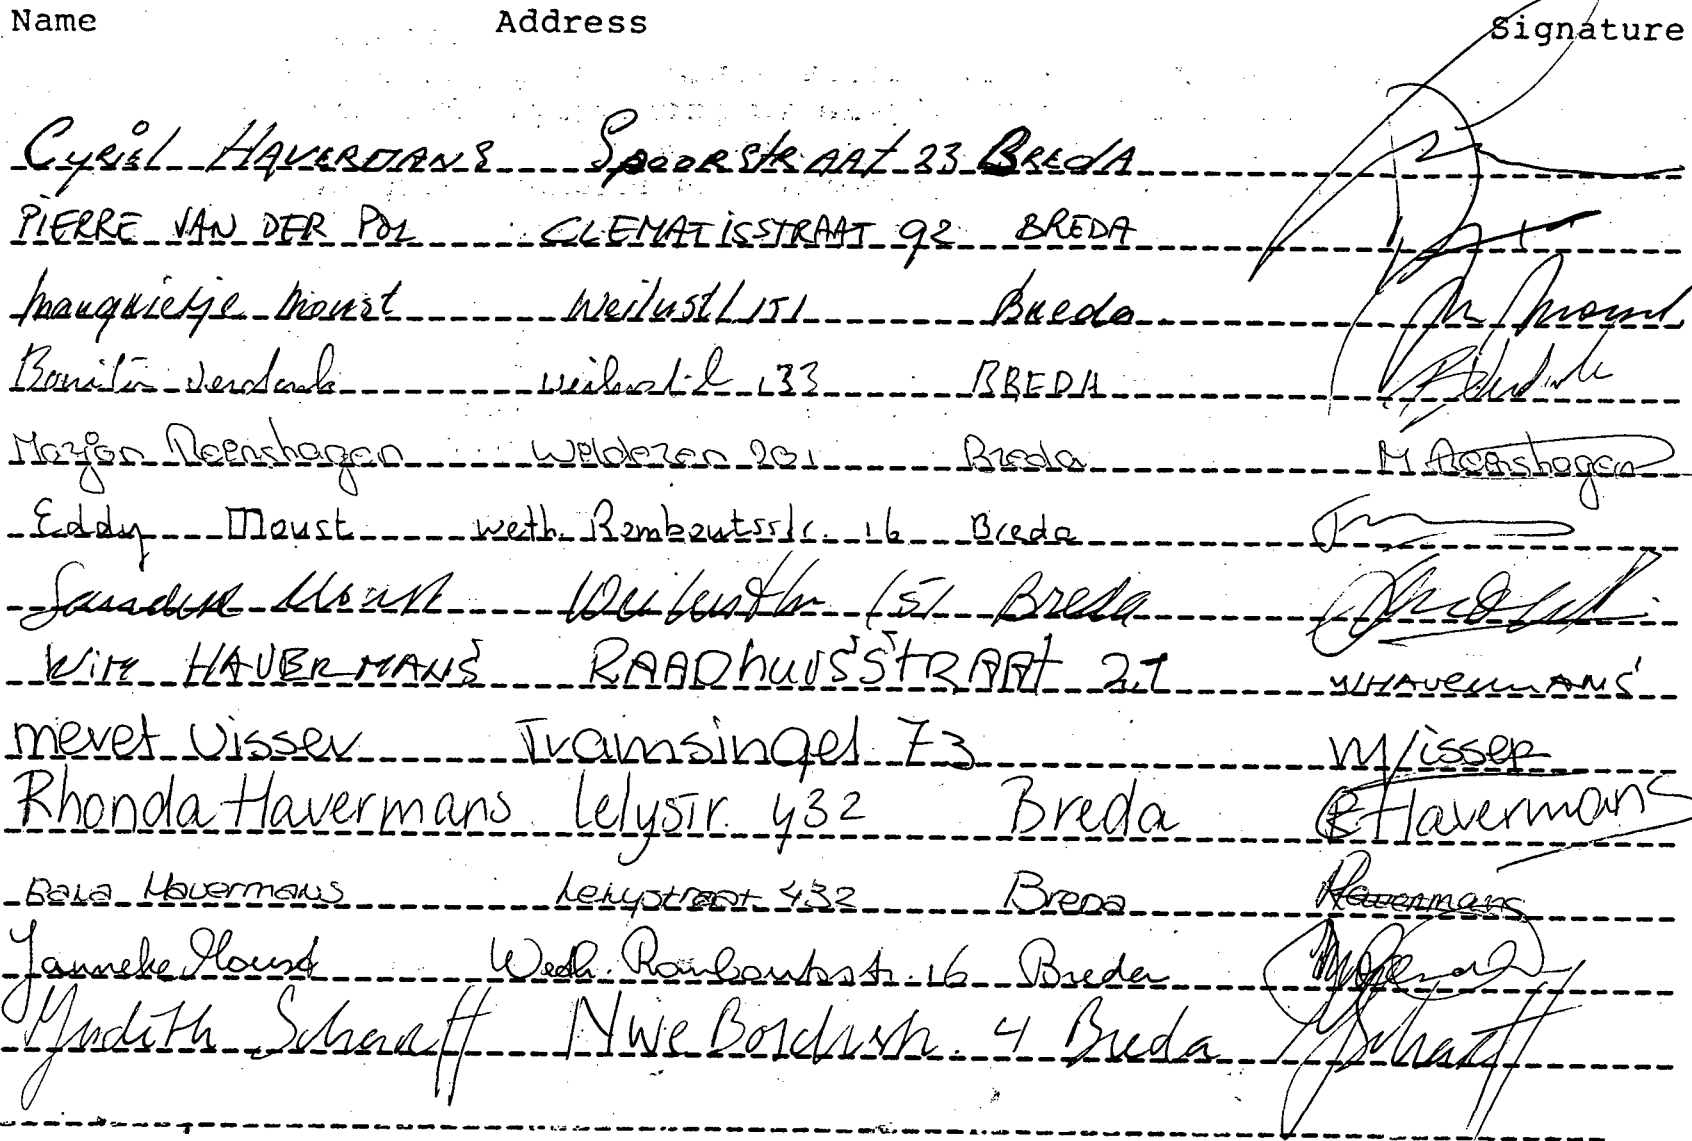 Name Address Signature
Cyriel HAVERMANS Spoorstraat 23 BREDA
PIERRE VAN DER POL CLEMATISSTRAAT 92 BREDA
Moust Weilustl 151 Breda M Moust
verdonk 133 BREDA
Marjon Reenshagen Welderen 201 Breda M Reenshagen
Eddy Moust weth. Romboutsstr. 16 Breda
Moust 151 Breda
Wim HAVERMANS RAADhuisSTRAAT 21 WHAVERMANS
meret Visser Tramsingel 73 MVisser
Rhonda Havermans lelystr. 432 Breda R Havermans
Havermans Lelystraat 432 Breda Havermans
Janneke Moust Weth. Romboutsstr. 16 Breda
Judith Scharff Nwe 4 Breda JScharff